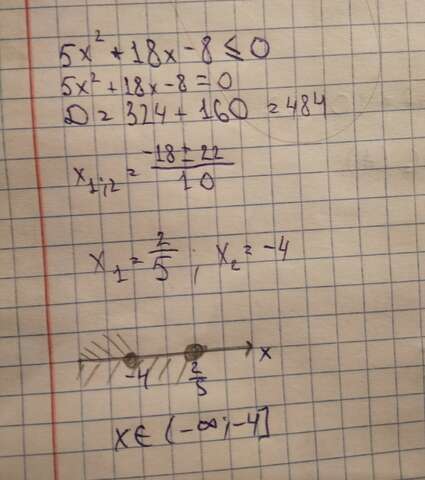 5x² + 18x - 8 ≤ 0
5x² + 18x - 8 = 0
D = 324 + 160 = 484
x₁;₂ = (-18 ± 22)/10
x₁ = 2/5 ; x₂ = -4
-4 2/5 x
x ∈ (-∞; -4]